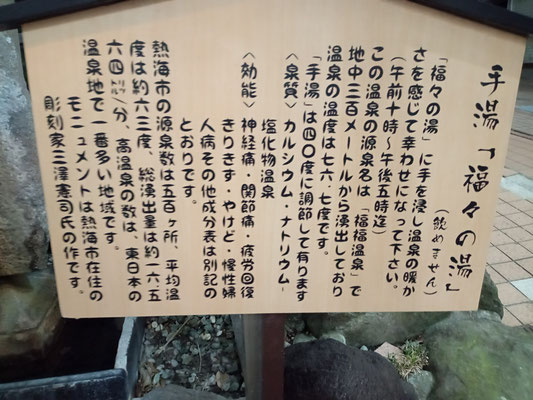 手湯「福々の湯」
（飲めません）
「福々の湯」に手を浸し温泉の暖か
さを感じて幸わせになって下さい。
（午前十時〜午後五時迄）
この温泉の源泉名は「福福温泉」で
地中三百メートルから湧出しており
温泉の温度は七六．七度です。
「手湯」は四〇度に調節して有ります
〈泉質〉カルシウム・ナトリウム-
塩化物温泉
〈効能〉神経痛・関節痛・疲労回復
きりきず・やけど・慢性婦
人病その他成分表は別記の
とおりです。
熱海市の源泉数は五百ヶ所、平均温
度は約六三度、総湧出量は約一六、五
六四リットル/分、高温泉の数は、東日本の
温泉地で一番多い地域です。
モニュメントは熱海市在住の
彫刻家三澤憲司氏の作です。